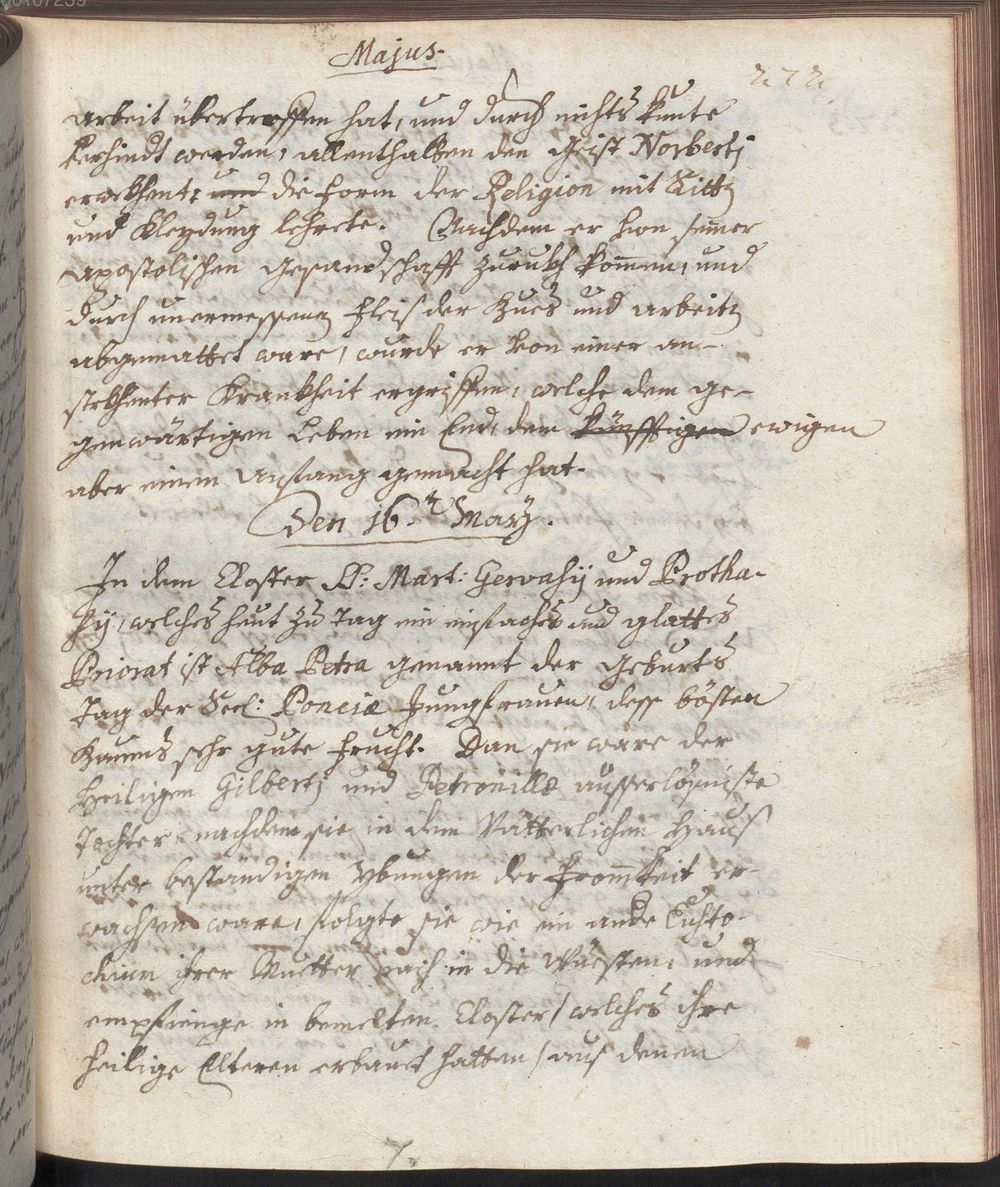 00107259
Majus.
272.
arbeit übertroffen hat, und durch nichts kunte
verhindt werden, allenthalben den Geist Norberti
erwekhent, und die Form der Religion mit Sitten
und Kleydung lehrete. Nachdem er von seiner
apostolischen Gesandschafft zurukh kommen, und
durch unermessenen Fleis der Zucht und arbeiten
abgemattet ware, wurde er von einer an-
stekhenter Krankheit ergriffen, welche dem ge-
genwärtigen Leben ein End, dem künfftigen ewigen
aber einen Anfang gemacht hat.
Den 16.ten Maÿ.
In dem Closter SS: Mart: Gervasÿ und Protha-
sÿ, welches heut zu Tag ein einfaches und glattes
Priorat ist Alba Petra genannt der Geburts
Tag der Seel: Ponciæ Jungfrauen, dess bösten
Baums sehr gute Frucht. Dan sie ware der
Heiligen Gilberti und Petronillæ
Tochter, nachdem sie in dem Vatterlichen Haus
unter beständigen Ybungen der Frommkeit er-
wachsen ware, folgte sie wie ein ande Eusto-
chium ihrer Mutter nach in die Wuesten, und
empfienge in bemelten Closter, welches ihre
heilige Elteren erbauet hatten, aus denen